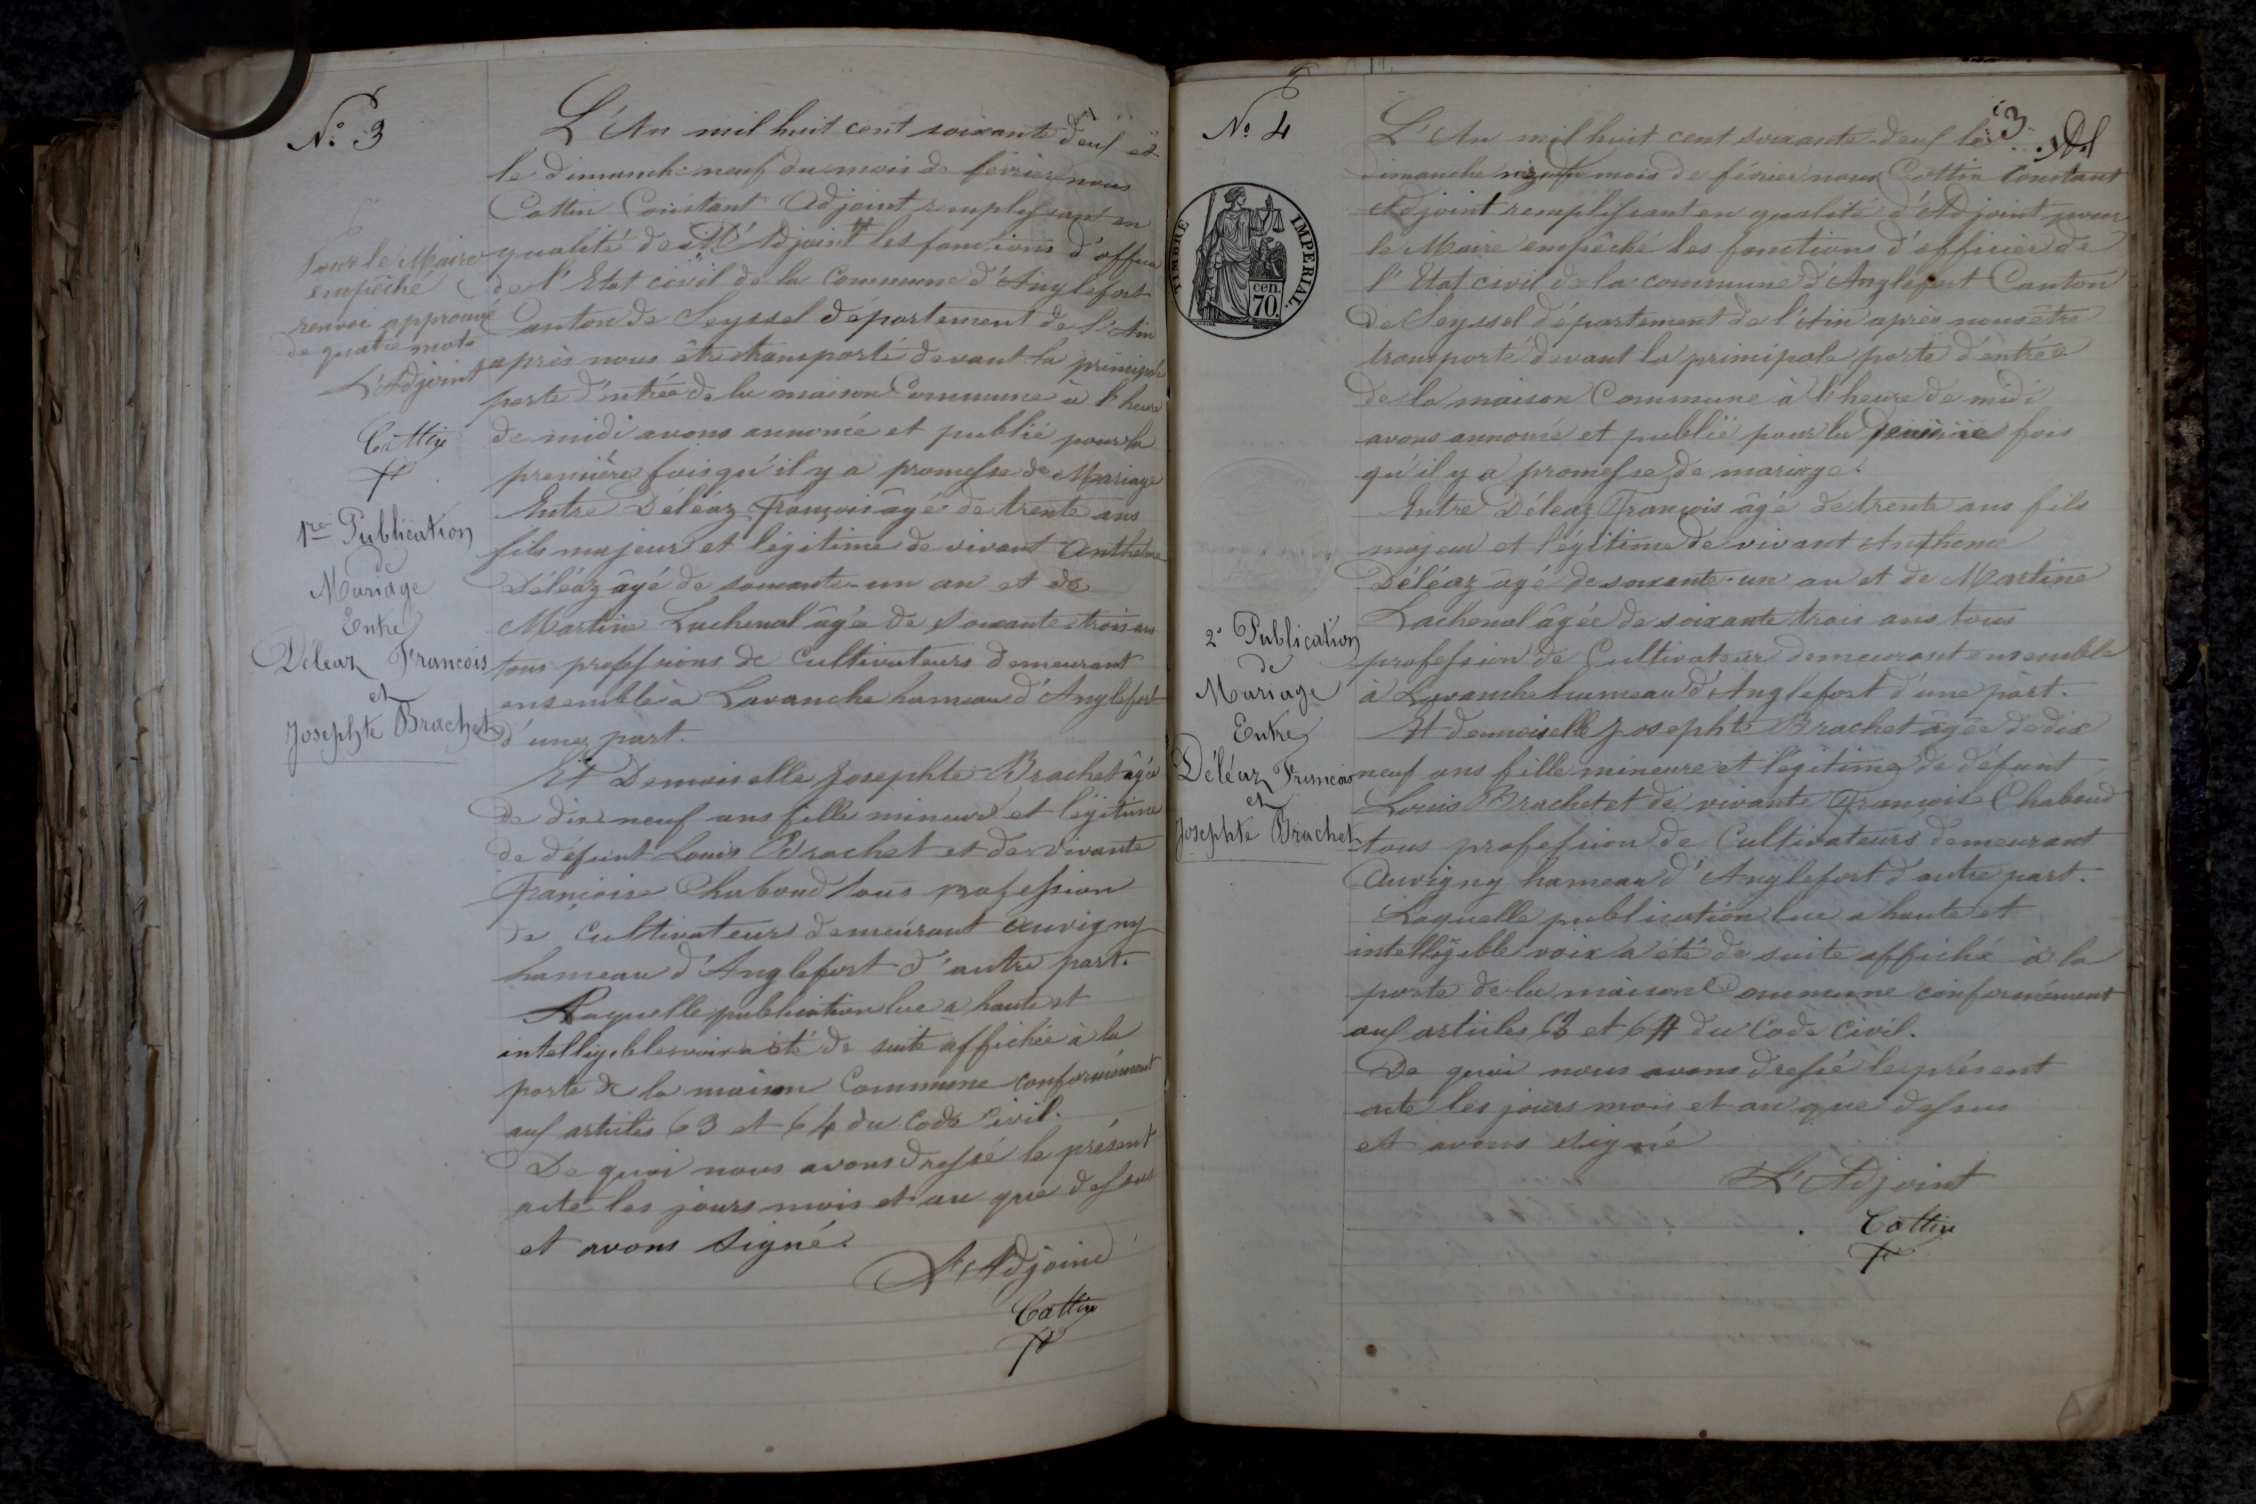 N.º 3
Pour le Maire
empêché
renvoi approuvé
de quatre mots
L'Adjoint
Cottin
1re Publication
de
Mariage
Entre
Deleaz Francois
et
Josephte Brachet
L'An mil huit cent soixante deux et
le dimanche neuf du mois de février nous
Cottin Constant Adjoint remplissant en
qualité de d'Adjoint # les fonctions d'officier
de l'Etat civil de la Commune d'Anglefort
Canton de Seyssel département de l'Ain
après nous être transporté devant la principale
porte d'entrée de la maison Commune à l'heure
de midi avons annoncé et publié pour la
première fois qu'il y a promesse de Mariage
Entre Déléaz François âgé de trente ans
fils majeur et légitime de vivant Anthelme
Déléaz âgé de soixante-un an et de
Martine Lachenal âgée de soixante-trois ans
tous professions de Cultivateurs demeurant
ensemble à Lavanche hameau d'Anglefort
d'une part.
Et Demoiselle Josephte Brachet âgée
de dix neuf ans fille mineure et légitime
de défunt Louis Brachet et de vivante
Françoise Chaboud tous profession
de Cultivateurs demeurant Auvigny
hameau d'Anglefort d'autre part.
Laquelle publication lue a haute et
intelligible voix a été de suite affichée à la
porte de la maison Commune conformément
aux articles 63 et 64 du Code Civil.
De quoi nous avons dressé le présent
acte les jours mois et an que dessus
et avons signé.
L'Adjoint
Cottin
N.º 4
TIMBRE IMPERIAL.
cen.
70.
2e Publication
de
Mariage
Entre
Déléaz Francois
et
Josephte Brachet
3
L'An mil huit cent soixante-deux le
dimanche du mois de février nous Cottin Constant
Adjoint remplissant en qualité d'Adjoint pour
le Maire empêché les fonctions d'officier de
l'Etat civil de la commune d'Anglefort Canton
de Seyssel département de l'Ain après nous être
transporté devant la principale porte d'entrée
de la maison Commune à l'heure de midi
avons annoncé et publié pour la fois
qu'il y a promesse de mariage.
Entre Déleaz François âgé de trente ans fils
majeur et légitime de vivant Anthelme
Déléaz âgé de soixante-un an et de Martine
Lachenal âgée de soixante trois ans tous
profession de Cultivateur demeurant ensemble
à Lavanche hameau d'Anglefort d'une part.
Et demoiselle Josephte Brachet âgée de dix
neuf ans fille mineure et légitime de défunt
Louis Brachet et de vivante Françoise Chaboud
tous profession de Cultivateurs demeurant
Auvigny hameau d'Anglefort d'autre part.
Laquelle publication lue a haute et
intelligible voix a été de suite affiché à la
porte de la maison Commune conformément
aux articles 63 et 64 du Code Civil.
De quoi nous avons dressé le présent
acte les jours mois et an que dessus
et avons signé
L'Adjoint
Cottin